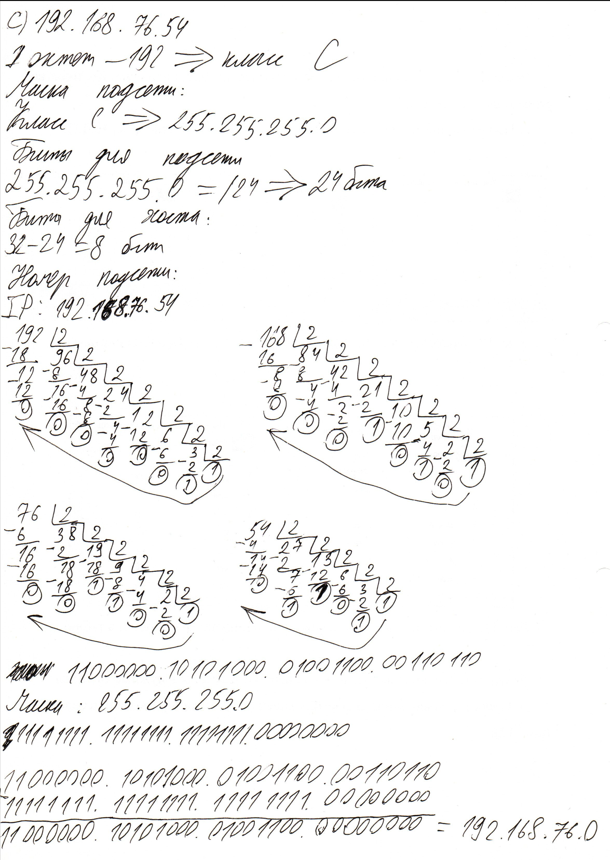 С) 192.168.76.54
I октет – 192 ⟹ класс C
Маска подсети:
Класс C ⟹ 255.255.255.0
Биты для подсети
255.255.255.0 = /24 ⟹ 24 бита
Биты для хоста:
32-24=8 бит
Номер подсети:
IP: 192.168.76.54
192 2
-18 96 2
-12 -8 48 2
12 -16 -4 24 2
0 16 -8 -2 12 2
0 8 -4 -12 6 2
0 4 12 -6 3 2
0 0 6 -2 1
0 1
168 2
16 84 2
-8 -8 42 2
8 -4 -4 21 2
0 4 -2 -2 10 2
0 2 1 10 5 2
0 0 -4 2 2
1 2 1
0
76 2
-6 38 2
16 -2 19 2
-16 18 -18 9 2
0 -18 1 -8 4 2
0 1 -4 2 2
0 -2 1
0
54 2
-4 27 2
14 -2 13 2
-14 7 12 6 2
0 -6 1 -6 3 2
1 0 2 1
1
11000000.10101000.01001100.00110110
Маска: 255.255.255.0
11111111.11111111.11111111.00000000
11000000.10101000.01001100.00110110
11111111.11111111.11111111.00000000
11000000.10101000.01001100.00000000 = 192.168.76.0